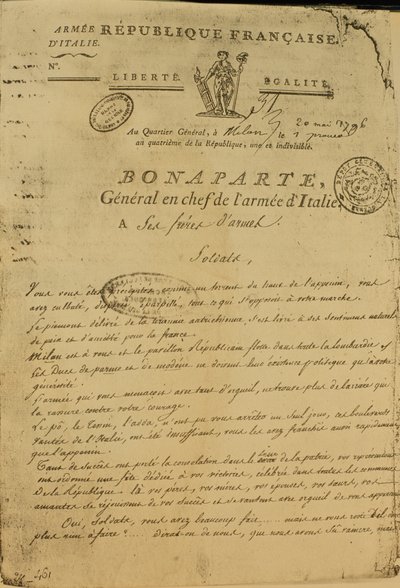 ARMÉE D'ITALIE.
RÉPUBLIQUE FRANÇAISE.
N°.
LIBERTÉ. ÉGALITÉ.
20 mai 1796
Au Quartier Général, à Milan le 1 prairial
au quatrième de la République, une et indivisible.
BONAPARTE,
Général en chef de l'armée d'Italie
A Ses frères d'armes.
Soldats,
Vous vous êtes précipités comme un torrent du haut de l'apennin, vous
avez culbuté, dispersé, éparpillé, tout ce qui s'opposait à votre marche.
Le piemont délivré de la tirannie autrichienne, s'est livré à ses sentimens naturels
de paix et d'amitié pour la france.
Milan est à vous et le pavillon Républicain flotte dans toute la lombardie.
Les Ducs de parme et de modène ne doivent leur existence politique qu'à votre
générosité.
L'armée qui vous menaçait avec tant d'orgueil, ne trouve plus de barrière qui
la rassure contre votre courage.
Le pô, le tesin, l'adda, n'ont pu vous arrêter un seul jour, ces boulevards
vantés de l'Italie, ont été insuffisants, vous les avez franchis aussi rapidement
que l'appennin.
Tant de succès ont porté la consolation dans le sein de la patrie, vos représentans
ont ordonné une fête dédiée à vos victoires, célébrée dans toutes les communes
De la République. là vos pères, vos mères, vos épouses, vos sœurs, vos
amantes se réjouissent de vos succès et se vantent avec orgueil de vous appartenir
Oui, Soldats, vous avez beaucoup fait .... mais ne vous reste-t-il donc
plus rien à faire? .... dira-t-on de nous, que nous avons su vaincre, mais